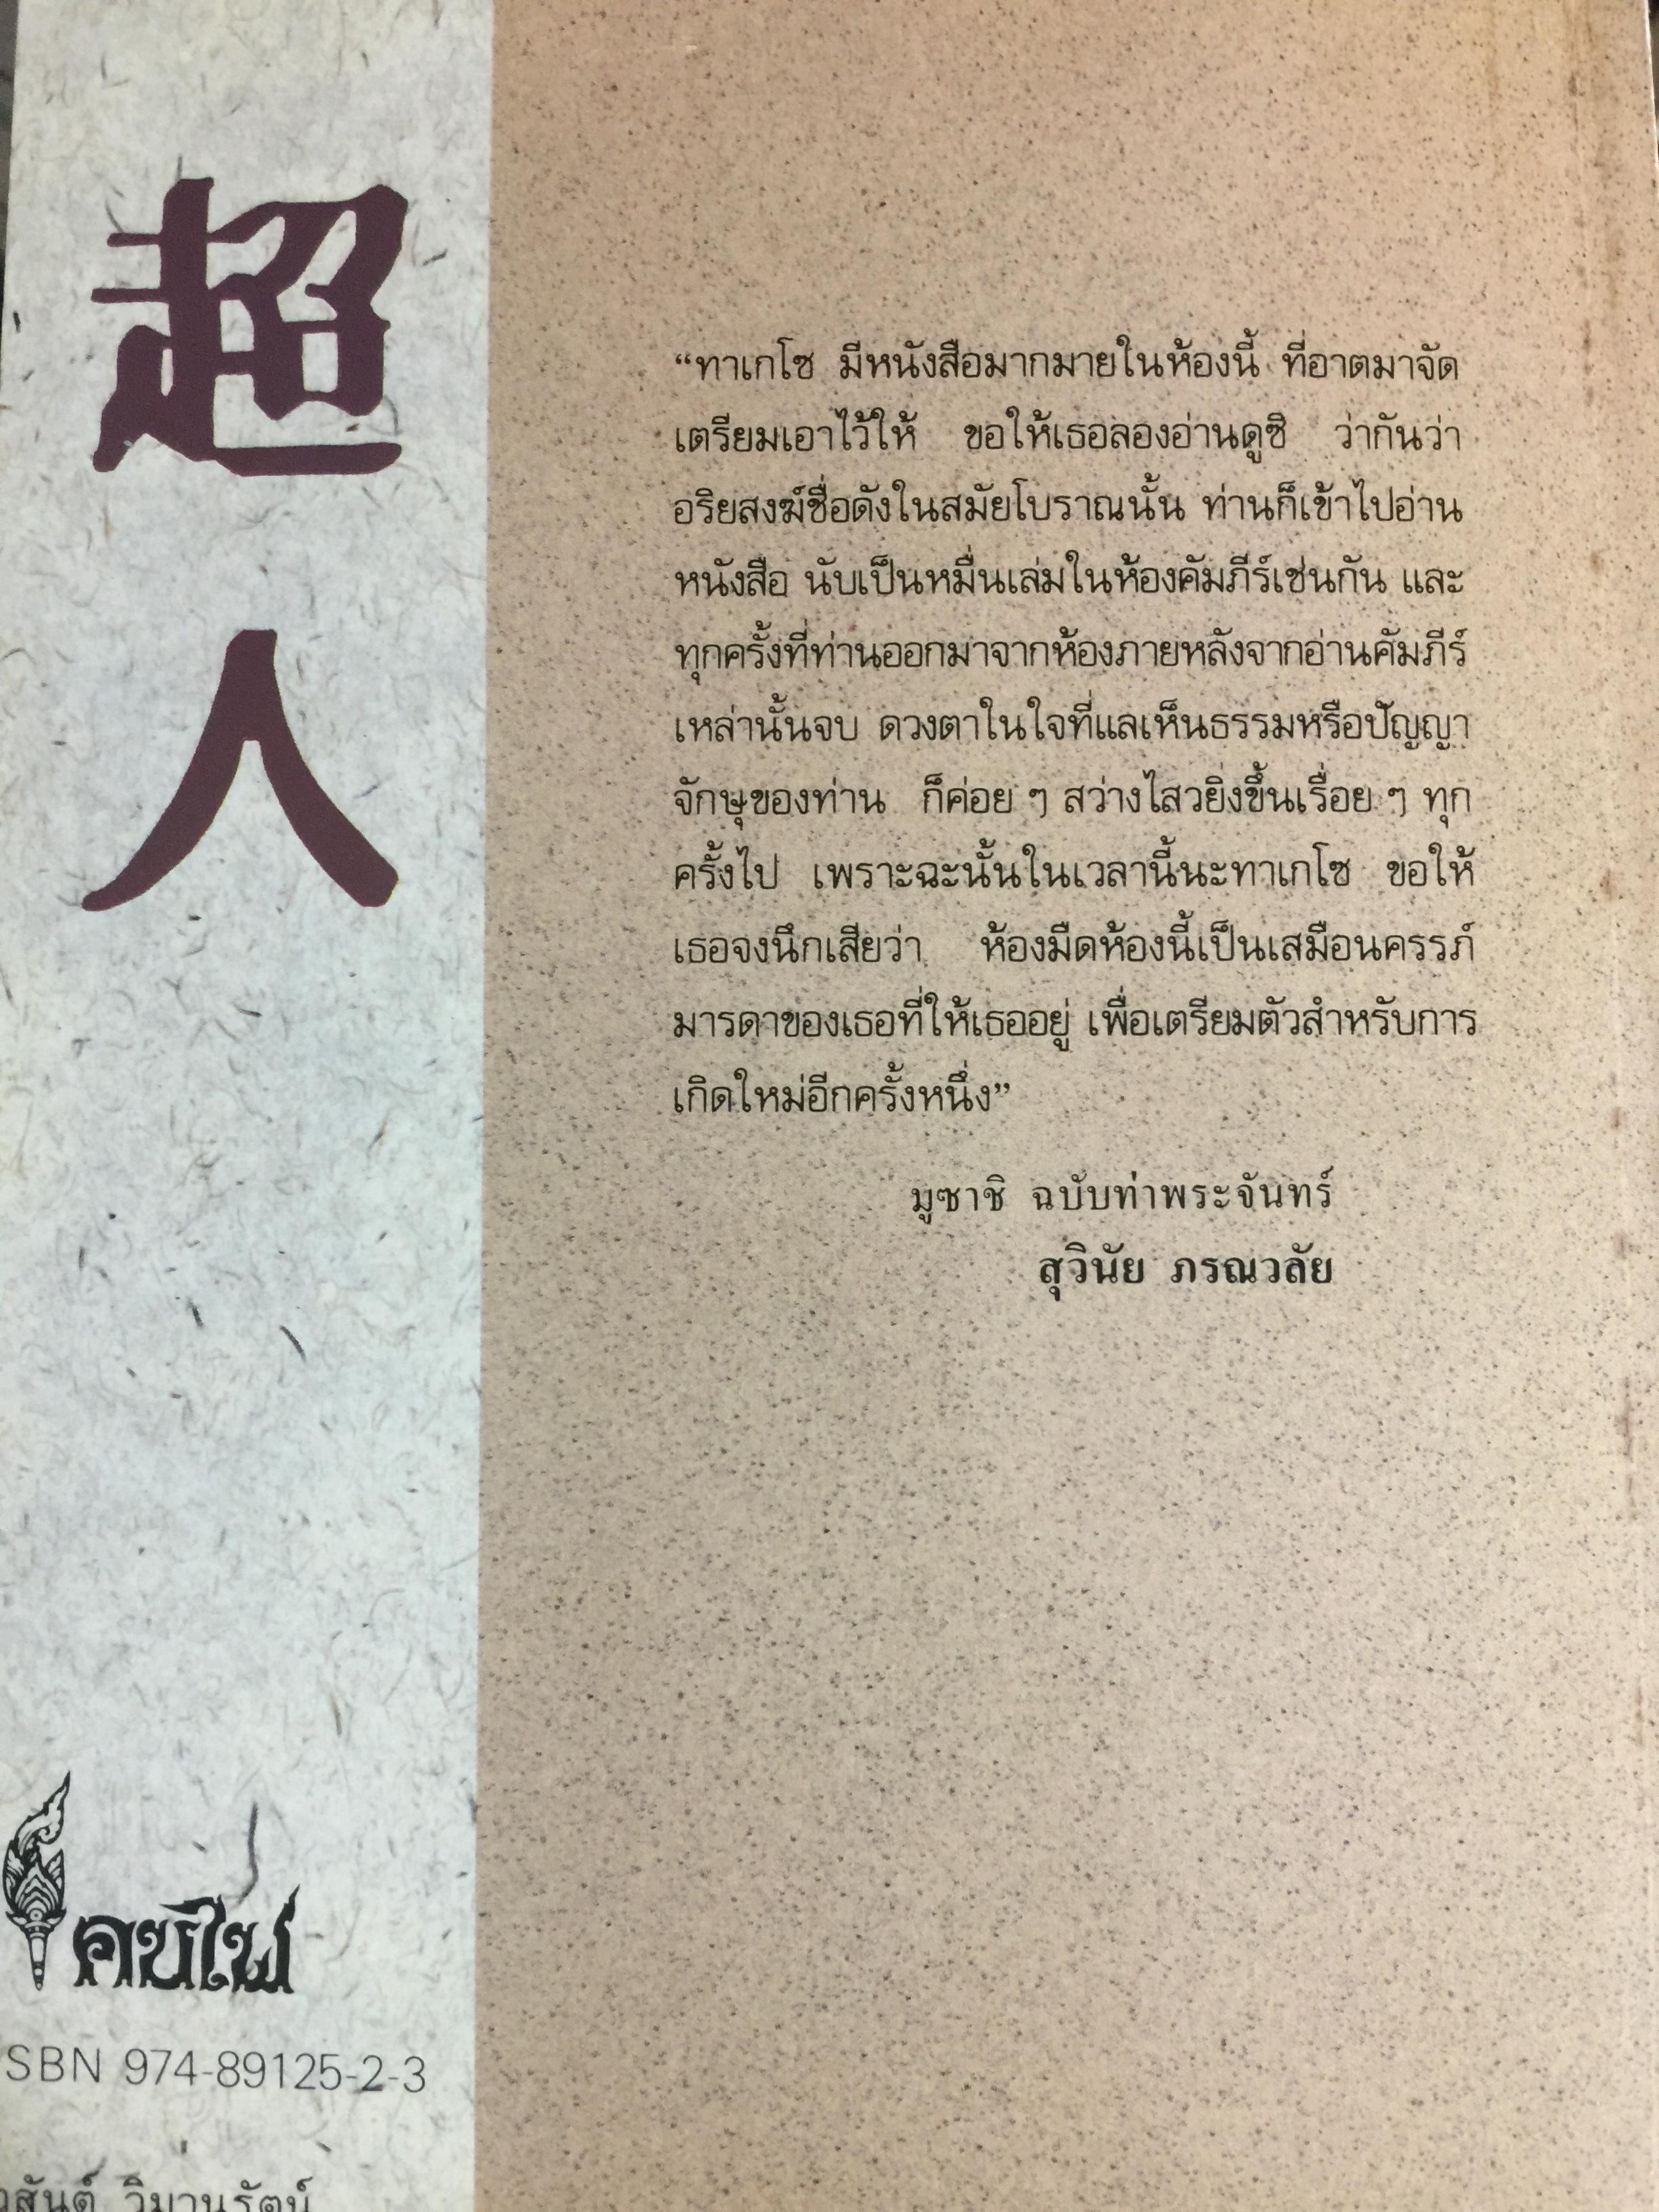 超
人
“ทาเกโซ มีหนังสือมากมายในห้องนี้ ที่อาตมาจัด
เตรียมเอาไว้ให้ ขอให้เธอลองอ่านดูซิ ว่ากันว่า
อริยสงฆ์ชื่อดังในสมัยโบราณนั้น ท่านก็เข้าไปอ่าน
หนังสือ นับเป็นหมื่นเล่มในห้องคัมภีร์เช่นกัน และ
ทุกครั้งที่ท่านออกมาจากห้องภายหลังจากอ่านคัมภีร์
เหล่านั้นจบ ดวงตาในใจที่แลเห็นธรรมหรือปัญญา
จักษุของท่าน ก็ค่อย ๆ สว่างไสวยิ่งขึ้นเรื่อย ๆ ทุก
ครั้งไป เพราะฉะนั้นในเวลานี้นะทาเกโซ ขอให้
เธอจงนึกเสียว่า ห้องมืดห้องนี้เป็นเสมือนครรภ์
มารดาของเธอที่ให้เธออยู่ เพื่อเตรียมตัวสำหรับการ
เกิดใหม่อีกครั้งหนึ่ง”
มูซาชิ ฉบับท่าพระจันทร์
สุวินัย ภรณวลัย
คบไฟ
SBN 974-89125-2-3
วิมานรัตน์